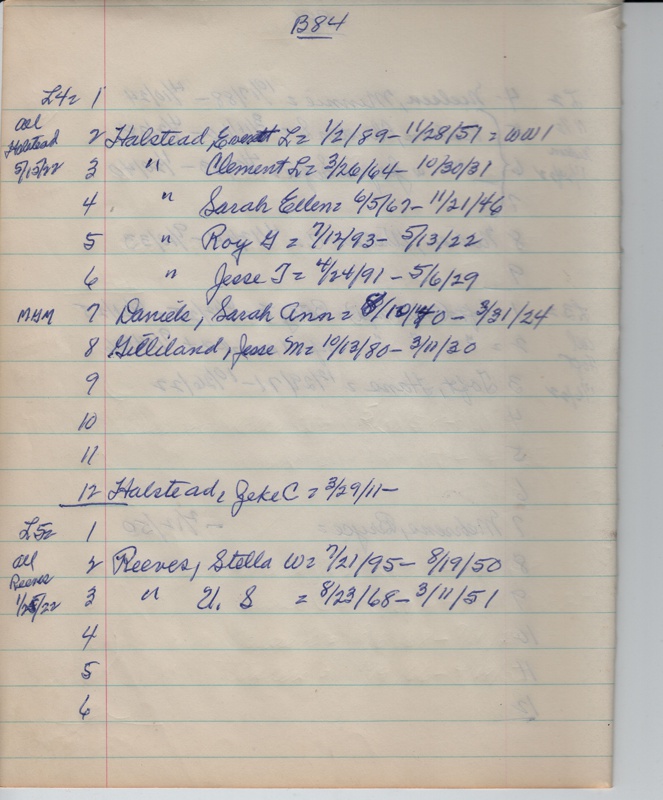 B84
L4= 1
all
Halstead 2 Halstead, Everett L= 1/2/89 - 11/28/51 = WW1
5/15/22 3 " Clement L= 3/26/64 - 10/30/31
4 " Sarah Ellen= 6/5/67 - 11/21/46
5 " Roy G = 7/12/93 - 5/13/22
6 " Jesse T= 4/24/91 - 5/6/29
7 Daniels, Sarah Ann= 8/10/40 - 3/31/24
8 Gilliland, Jesse M= 10/13/80 - 3/11/20
9
10
11
12 Halstead, Zeke C = 3/29/11-
L5= 1
all 2 Reeves, Stella W= 7/21/95 - 8/19/50
Reeves
1/25/22 3 " U. S = 8/23/68 - 3/11/51
4
5
6